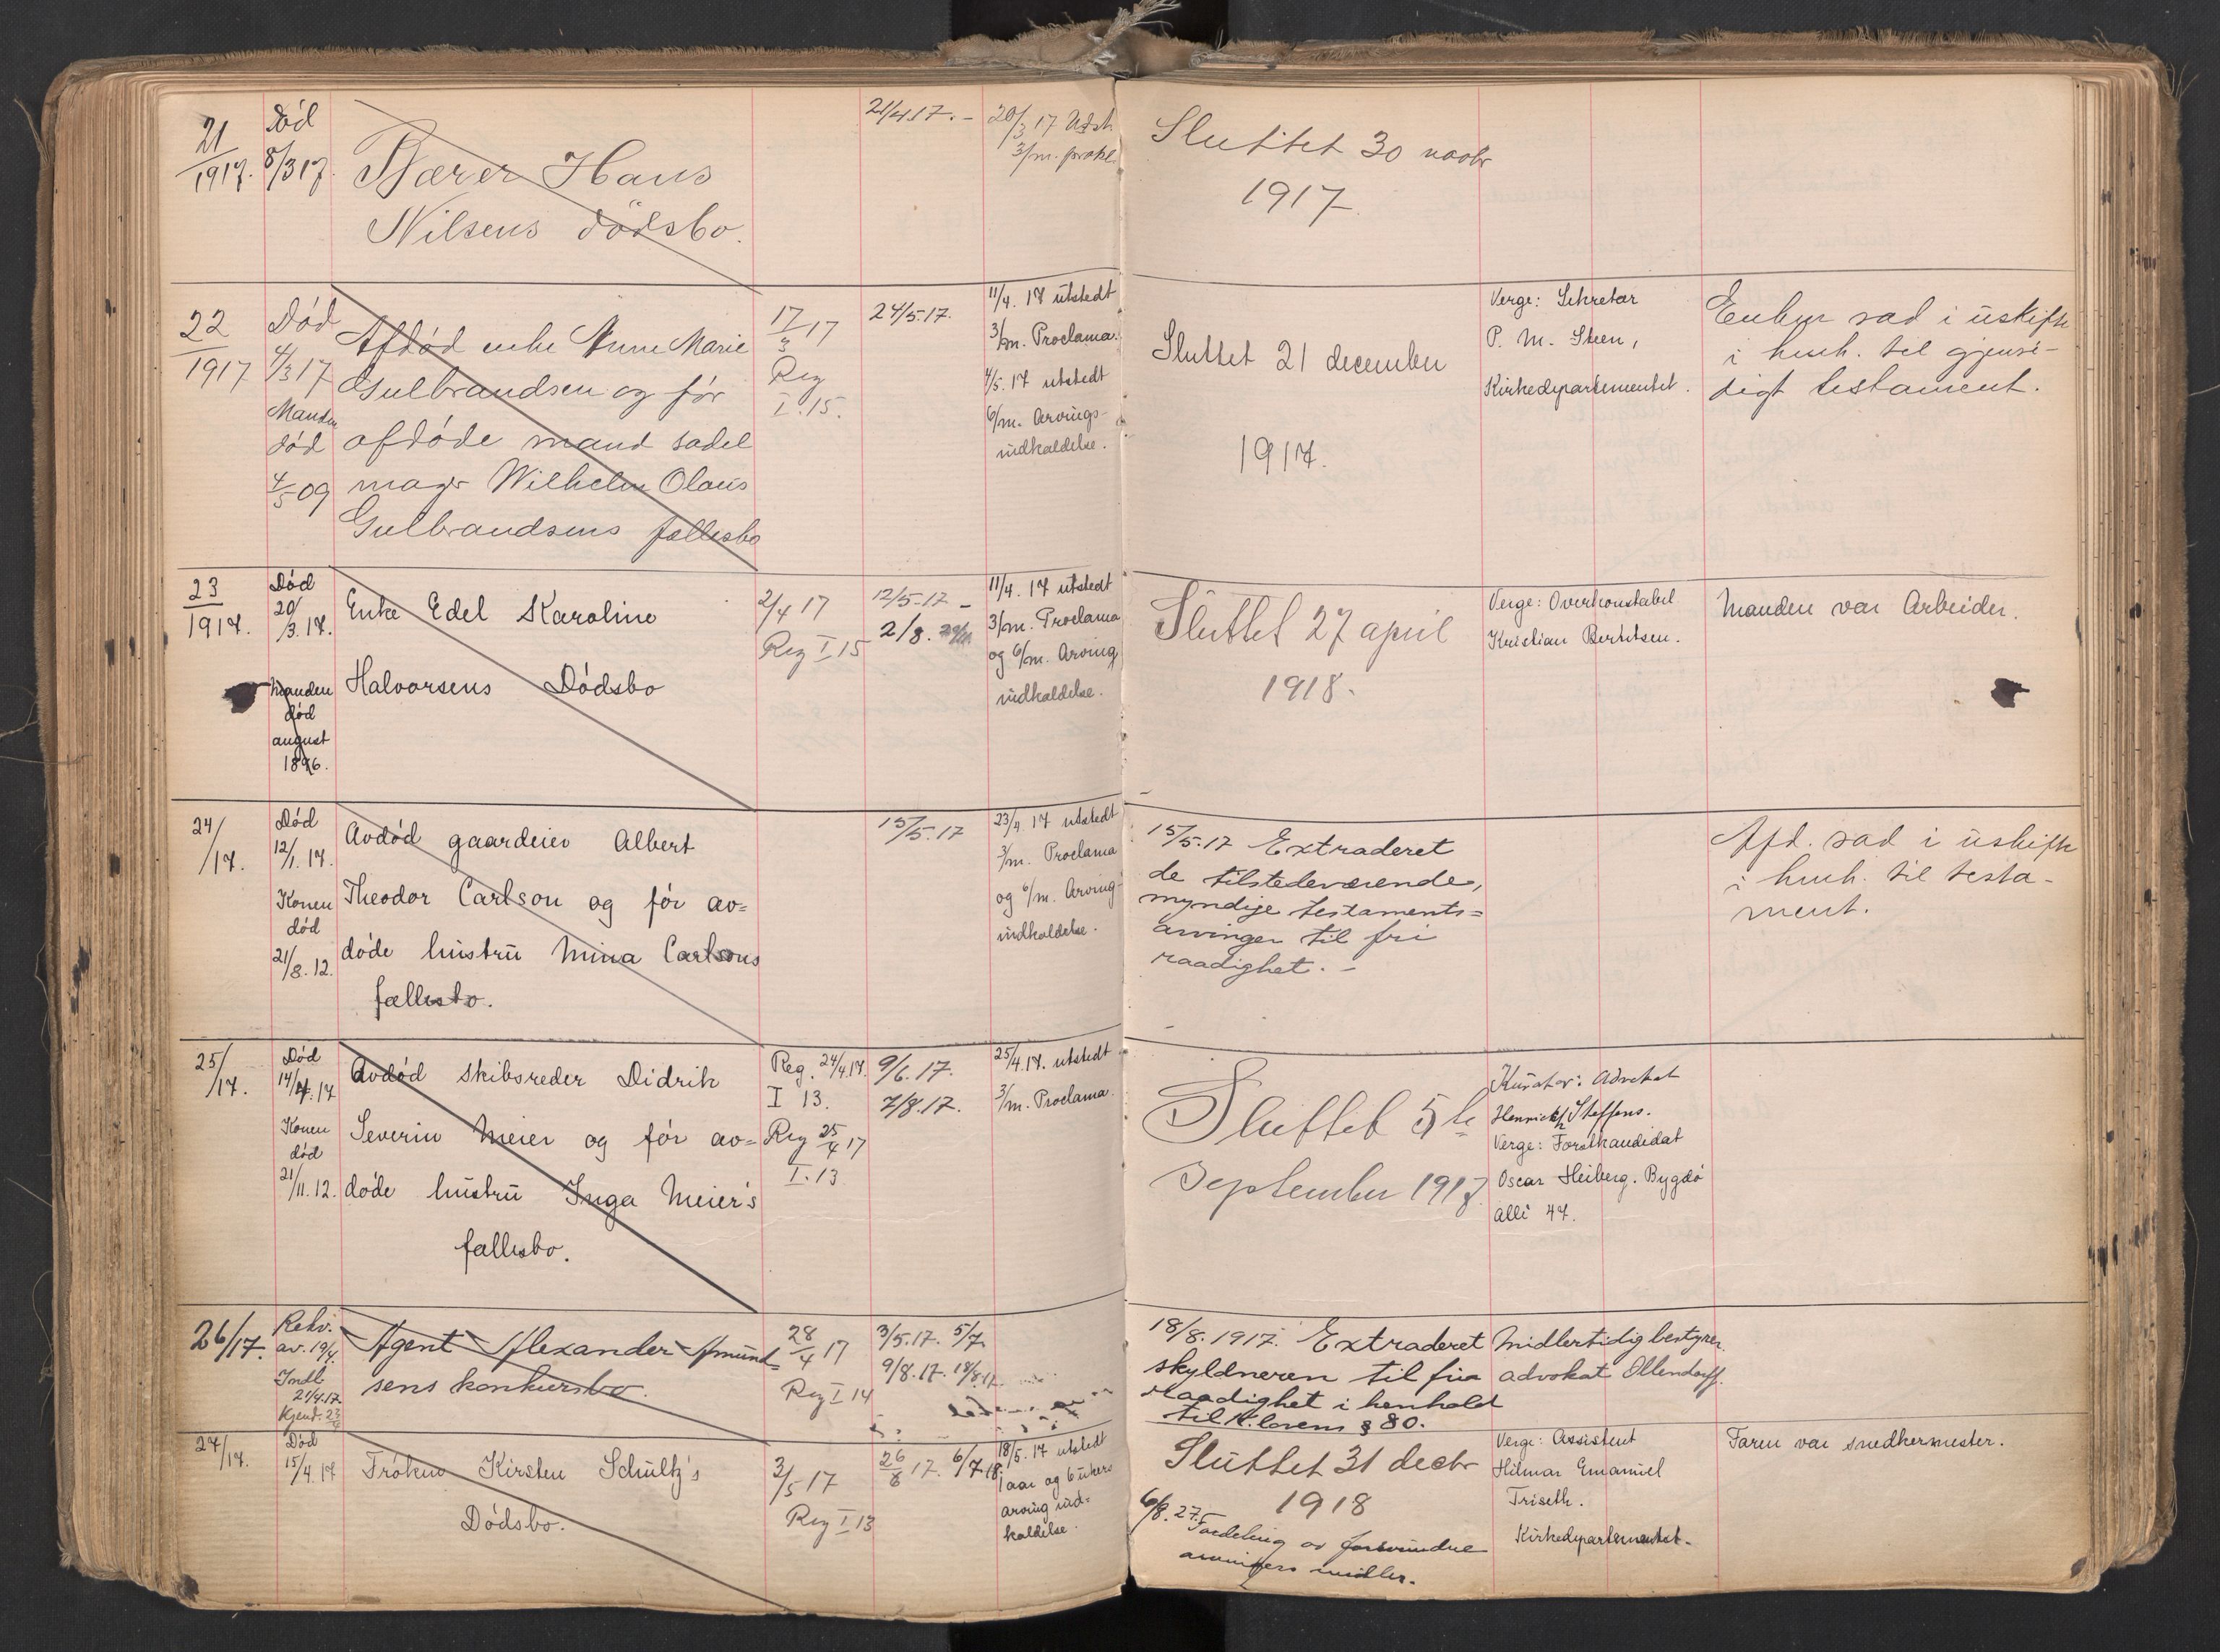 21
1917.
Død
8/3 17.
Bærer Hans
Nilsens dödsbo.
21/4.17. –
20/3 17 Udst
3/m. prokl.
Sluttet 30 novbr
1917.
22
1917
Død
4/3 17
Manden
død
4/5 09
Afdød enke Anne Marie
Gulbrandsen og før
afdøde mand sadel
mager Wilhelm Olaus
Gulbrandsens fællesbo
17/3 17
Reg
I. 15.
24/5.17.
11/4. 17 utstedt
3/m. Proclama.
4/5. 17 utstedt
6/m. Arvings-
indkaldelse.
Sluttet 21 december
1917.
Verge: Sekretær
P. M. Steen,
Kirkedepartementet.
Enken sad i uskifte
i henh. til gjensi-
digt testament.
23
1917.
Død
20/3. 17.
Manden
død
august
1896.
Enke Edel Karoline
Halvorsens Dødsbo
2/4 17
Reg I 15
12/5.17 –
2/8.
11/4. 17 utstedt
3/m. Proclama
og 6/m. Arving
indkaldelse.
Sluttet 27 april
1918.
Verge: Overkonstabel
Kristian Berntsen.
Manden var Arbeider.
24/17.
Død
12/1. 17.
Konen
død
21/8. 12.
Avdød gaardeier Albert
Theodor Carlson og før av=
døde hustru Mina Carlsons
fællesbo.
15/5.17
23/4 17 utstedt
3/m. Proclama
og 6/m. Arving-
indkaldelse.
15/5.17 Extraderet
de tilstedeværende,
myndige testaments=
arvinger til fri
raadighet. –
Afd. sad i uskifte
i henh. til testa-
ment.
25/17.
Død
14/4. 17
Konen
død
21/11. 12.
Avdød skibsreder Didrik
Severin Meier og før av=
døde hustru Inga Meier's
fællesbo.
Reg. 24/4.17.
I 13.
Reg 25/4 17
I. 13
9/6.17.
7/8.17.
25/4.17. utstedt
3/m. Proclama.
Sluttet 5te
September 1917
Kurator: Advokat
Henrich Steffens.
Verge: Forstkandidat
Oscar Heiberg. Bygdø
alle 47.
26/17.
Rekv.
av. 19/4.
Indb
21/4.17.
Kjend. 23/4
Agent Alexander Amund-
sens konkursbo.
28/4 17
Reg I 14
3/5.17. 5/7.
9/8.17. 18/8.17.
18/8.1917. Extraderet
skyldneren til fri
Raadighet i henhold
til K.lovens § 80.
Midlertidig bestyrer
advokat Ollendorff.
27/17.
Død
15/4. 17
Frøken Kirsten Schultz's
Dødsbo.
3/5 17
Reg I 13
26/6 17. 6/7 18.
18/5. 17 utstedt
1 aar og 6 ukers
arving ind=
kaldelse.
Sluttet 31 decbr
1918
6/8. 27. Fordeling av forsvundne
arvingers midler.
Verge: Assistent
Hilmar Emanuel
Friseth.
Kirkedepartementet.
Faren var snedkermester.